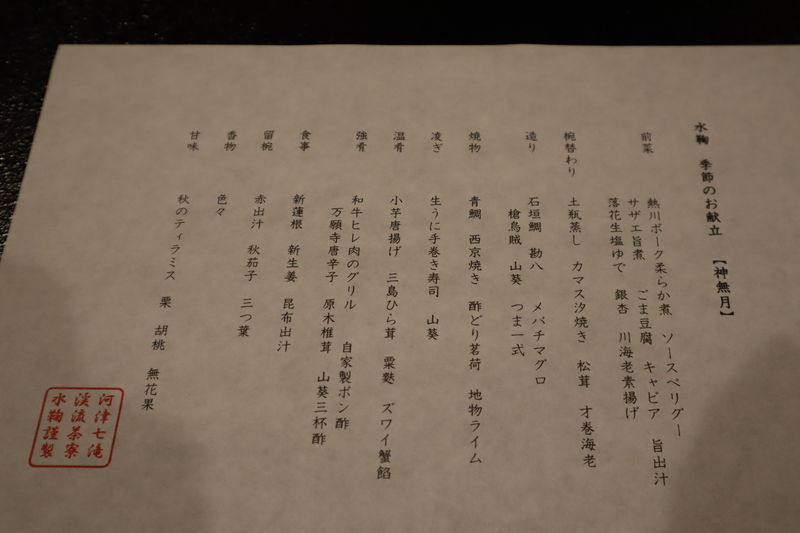 水鞠 季節のお献立 【神無月】
前菜 熱川ポーク柔らか煮 ソースペリグー
サザエ旨煮 ごま豆腐 キャビア 旨出汁
落花生塩ゆで 銀杏 川海老素揚げ
椀替わり 土瓶蒸し カマス汐焼き 松茸 才巻海老
造り 石垣鯛 勘八 メバチマグロ
槍烏賊 山葵 つま一式
焼物 青鯛 西京焼き 酢どり茗荷 地物ライム
凌ぎ 生うに手巻き寿司 山葵
温肴 小芋唐揚げ 三島ひら茸 粟麩 ズワイ蟹餡
強肴 和牛ヒレ肉のグリル 自家製ポン酢
万願寺唐辛子 原木椎茸 山葵三杯酢
食事 新蓮根 新生姜 昆布出汁
留椀 赤出汁 秋茄子 三つ葉
香物 色々
甘味 秋のティラミス 栗 胡桃 無花果
河津七滝
渓流茶寮
水鞠謹製